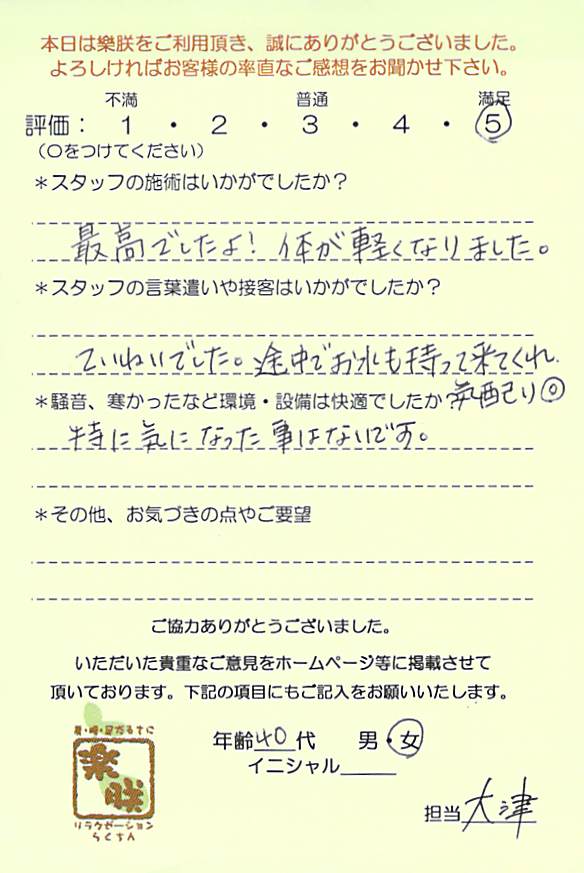 本日は樂朕をご利用頂き、誠にありがとうございました。
よろしければお客様の率直なご感想をお聞かせ下さい。
不満 普通 満足
評価： 1 ・ 2 ・ 3 ・ 4 ・ 5
（○をつけてください）
＊スタッフの施術はいかがでしたか？
最高でしたよ！ 体が軽くなりました。
＊スタッフの言葉遣いや接客はいかがでしたか？
ていねいでした。途中でお水も持って来てくれ
気配り◎
＊騒音、寒かったなど環境・設備は快適でしたか？
特に気になった事はないです。
＊その他、お気づきの点やご要望
ご協力ありがとうございました。
いただいた貴重なご意見をホームページ等に掲載させて
頂いております。下記の項目にもご記入をお願いいたします。
年齢 40 代 男・女
イニシャル
担当 大津
樂朕
リラクゼーション
らくちん